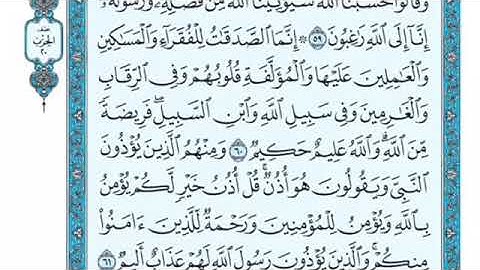 وَقَالُوا۟ حَسْبُنَا ٱللَّهُ سَيُؤْتِينَا ٱللَّهُ مِن فَضْلِهِۦ وَرَسُولُهُۥٓ
إِنَّآ إِلَى ٱللَّهِ رَٰغِبُونَ ٥٩ ۞ إِنَّمَا ٱلصَّدَقَٰتُ لِلْفُقَرَآءِ وَٱلْمَسَٰكِينِ
وَٱلْعَٰمِلِينَ عَلَيْهَا وَٱلْمُؤَلَّفَةِ قُلُوبُهُمْ وَفِى ٱلرِّقَابِ
وَٱلْغَٰرِمِينَ وَفِى سَبِيلِ ٱللَّهِ وَٱبْنِ ٱلسَّبِيلِ ۖ فَرِيضَةً
مِّنَ ٱللَّهِ ۗ وَٱللَّهُ عَلِيمٌ حَكِيمٌ ٦٠ وَمِنْهُمُ ٱلَّذِينَ يُؤْذُونَ
ٱلنَّبِىَّ وَيَقُولُونَ هُوَ أُذُنٌ ۚ قُلْ أُذُنُ خَيْرٍ لَّكُمْ يُؤْمِنُ
بِٱللَّهِ وَيُؤْمِنُ لِلْمُؤْمِنِينَ وَرَحْمَةٌ لِّلَّذِينَ ءَامَنُوا۟
مِنكُمْ ۚ وَٱلَّذِينَ يُؤْذُونَ رَسُولَ ٱللَّهِ لَهُمْ عَذَابٌ أَلِيمٌ ٦١
نصف
الحزب
٢٠